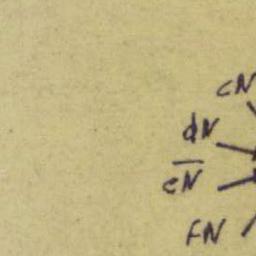 cN
dN
eN
FN